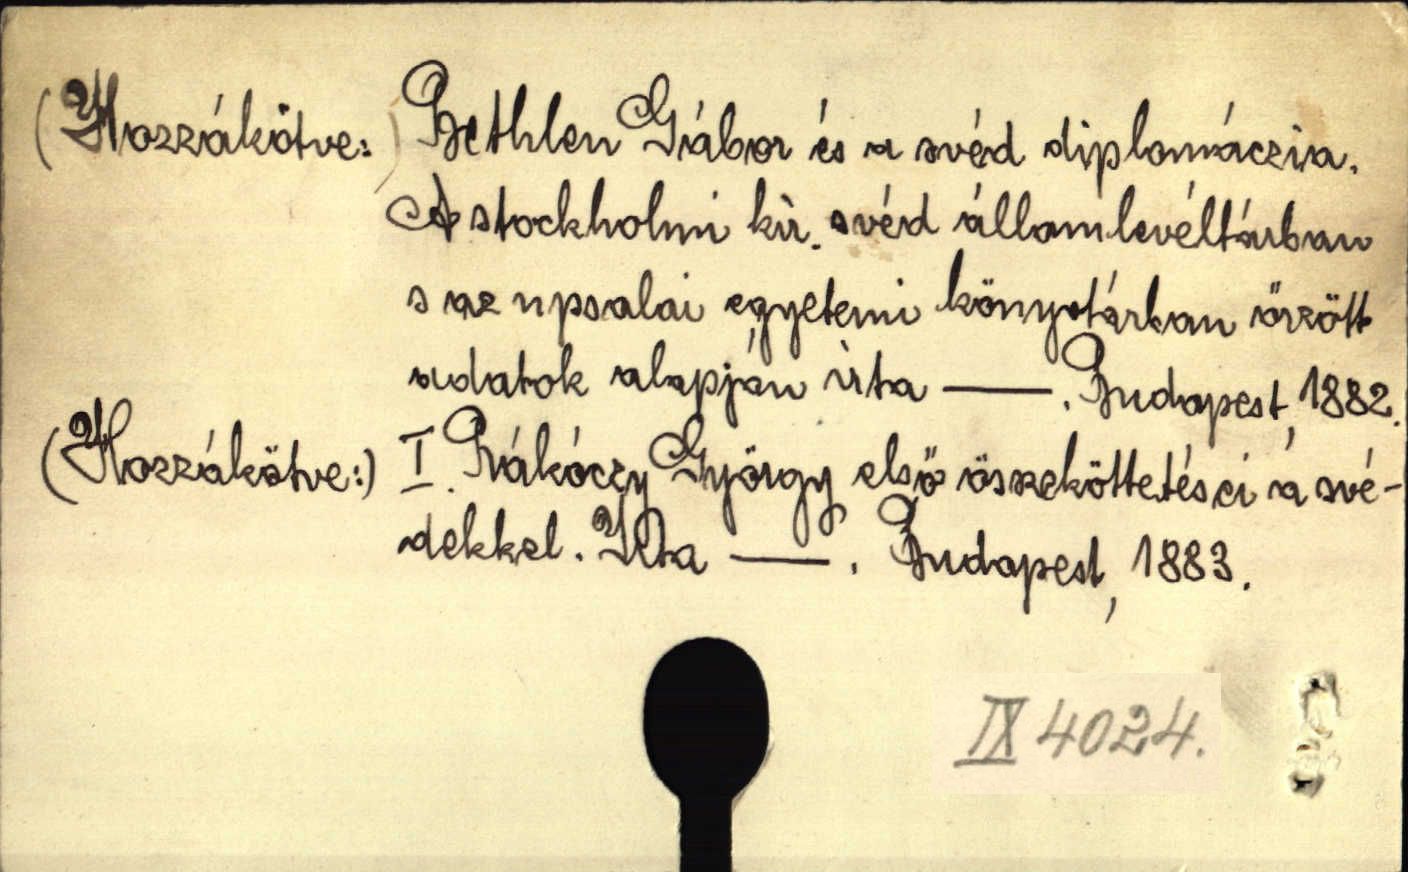 (Hozzákötve:) Bethlen Gábor és a svéd diplomáczia.
A stockholmi kir. svéd államlevéltárban
s az upsalai egyetemi könyvtárban őrzött
adatok alapján írta —. Budapest, 1882.
(Hozzákötve:) I. Rákóczy György első összeköttetései a své-
dekkel. Irta —. Budapest, 1883.
IX 4024.